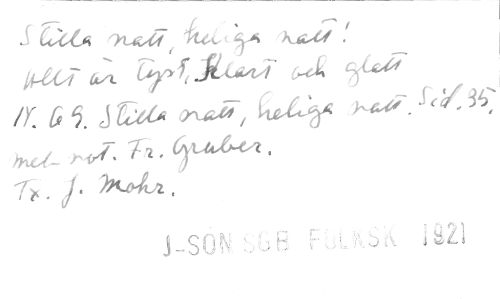 Stilla natt, heliga natt!
Allt är tyst, klart och glatt
N. 69. Stilla natt, heliga natt. Sid. 35,
mel- not. Fr. Gruber.
Tx. J. Mohr.
J-SÖN SGB FOLKSK 1921